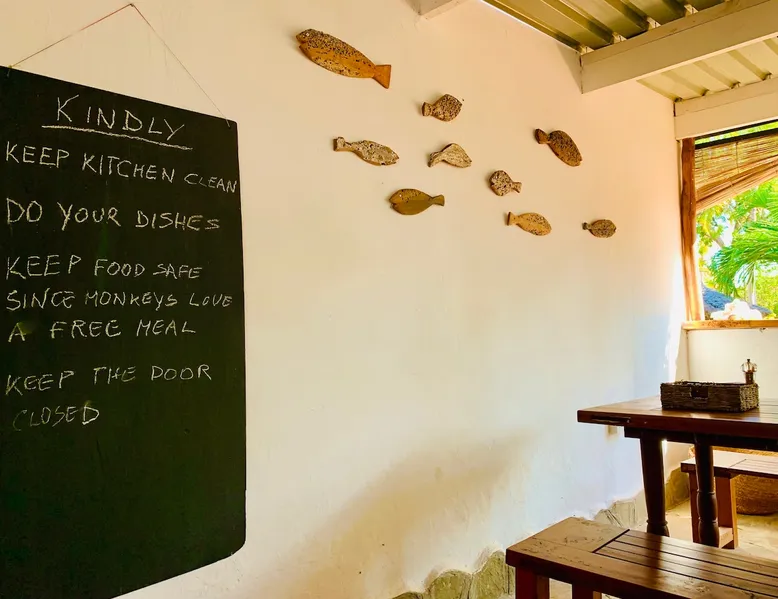 KINDLY
KEEP KITCHEN CLEAN
DO YOUR DISHES
KEEP FOOD SAFE
SINCE MONKEYS LOVE
A FREE MEAL
KEEP THE DOOR
CLOSED